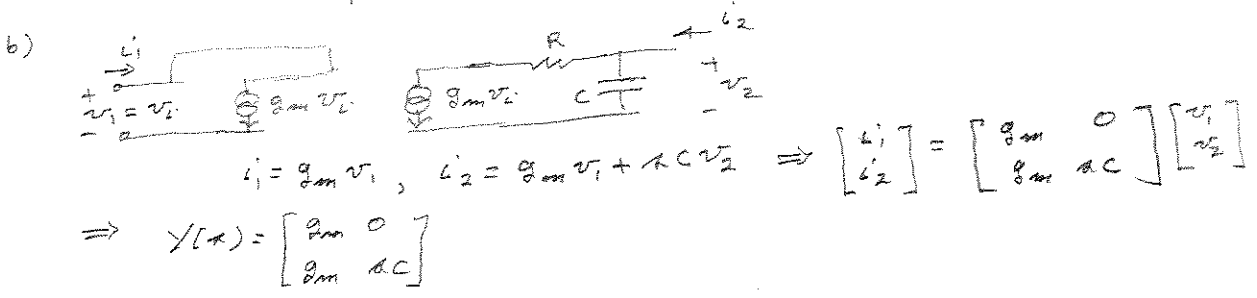 b)
i₁ i₂
R
+ v₁ = vᵢ - gₘ vᵢ gₘ vᵢ C + v₂ -
i₁ = gₘ v₁ , i₂ = gₘ v₁ + s C v₂ ⇒ [i₁ i₂] = [gₘ 0 gₘ sC] [v₁ v₂]
⇒ Y(s) = [gₘ 0 gₘ sC]